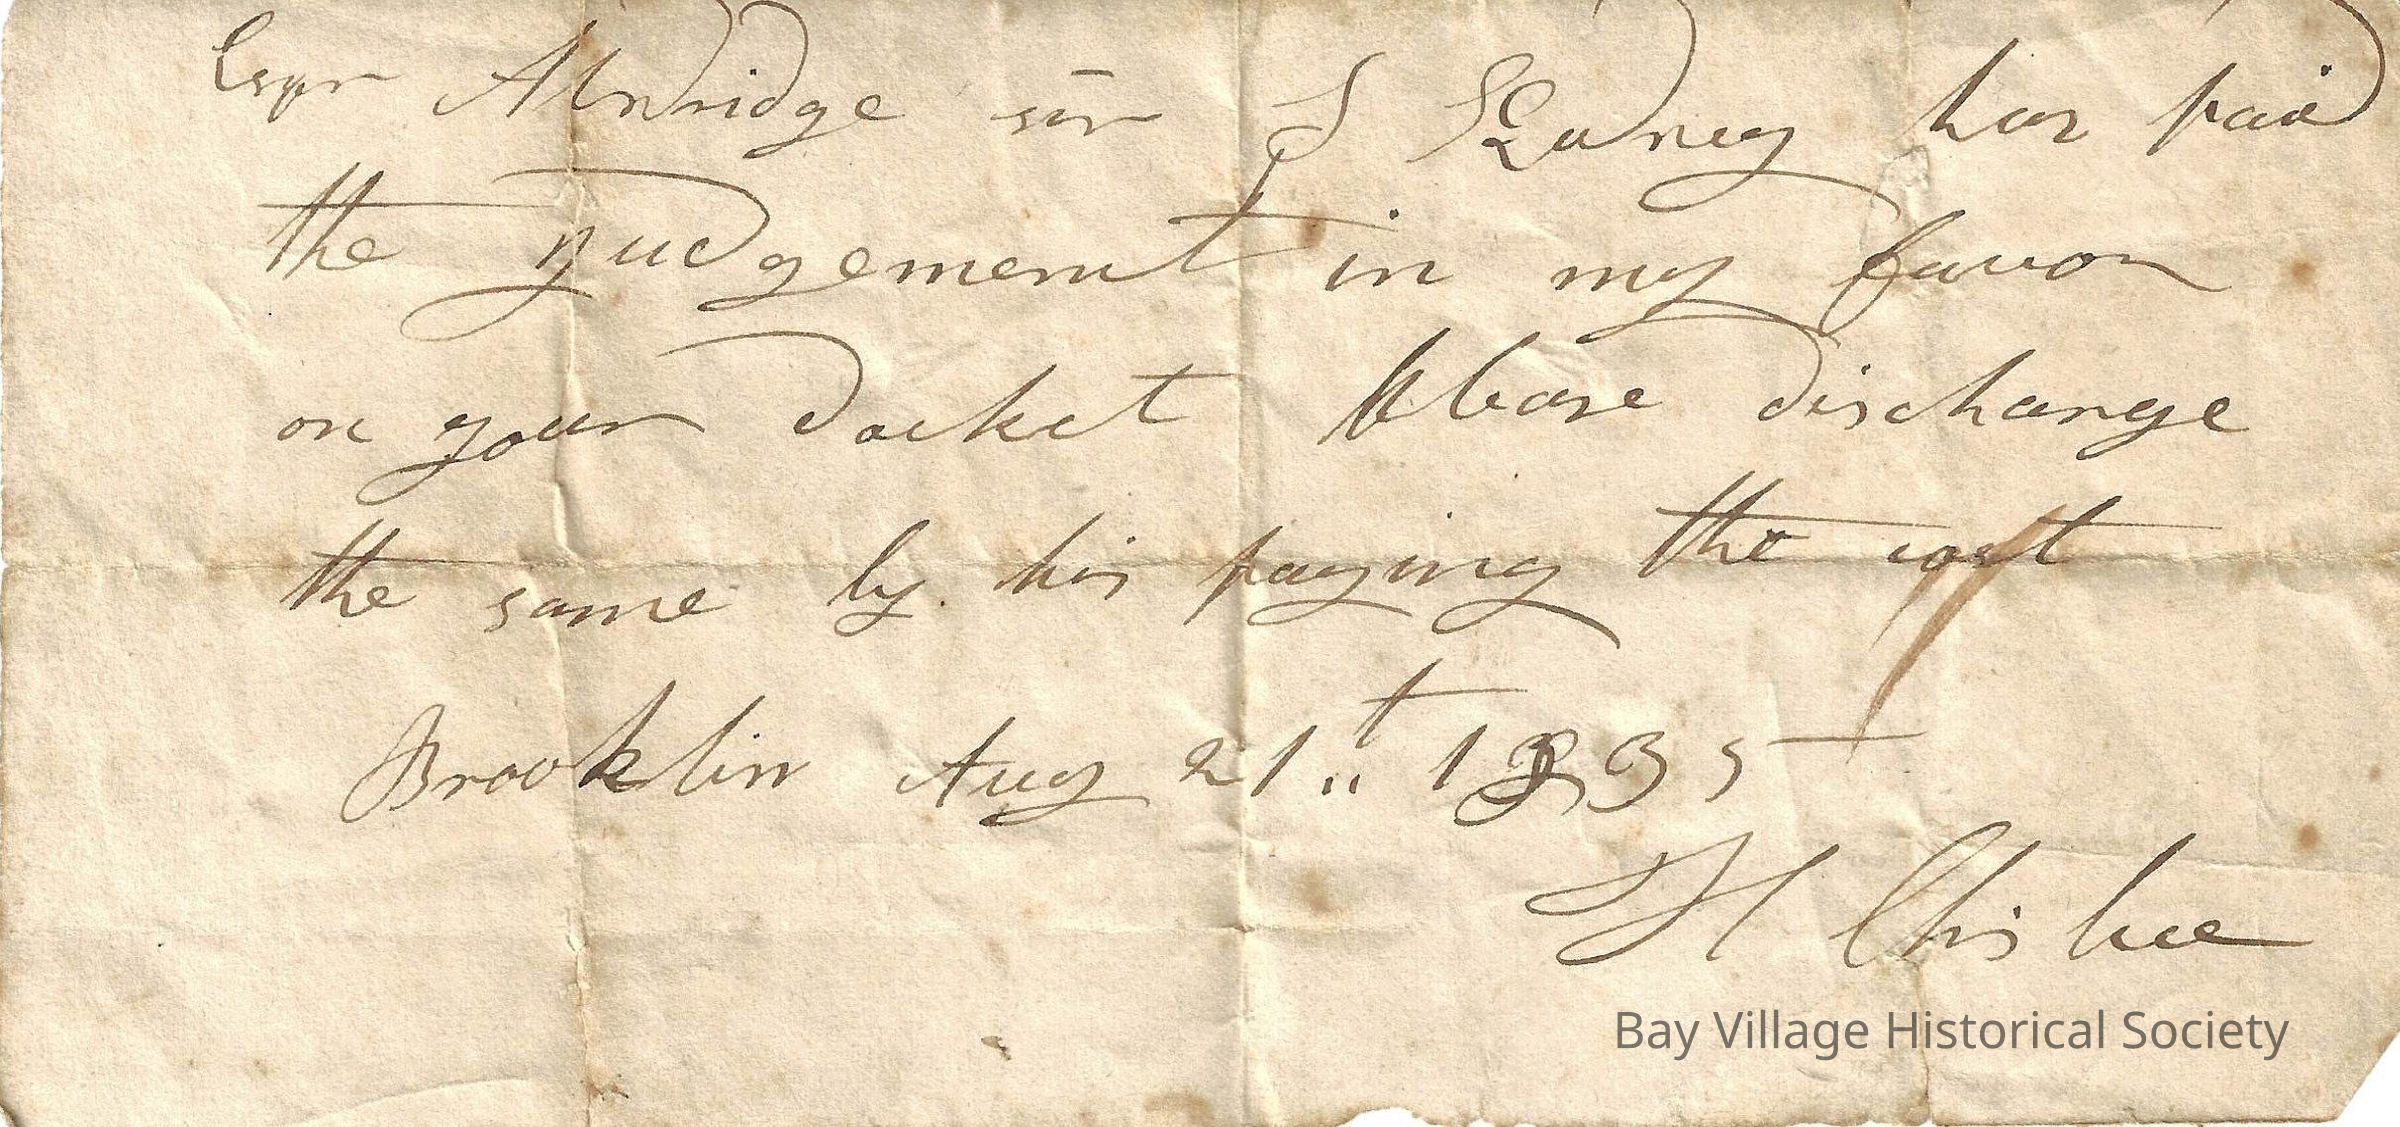 Esqr Aldridge sir I has paid
the judgement in my favor
on your docket Please discharge
the same by his paying the cost
Brooklin Aug 21st 1835
H Chisbee
Bay Village Historical Society